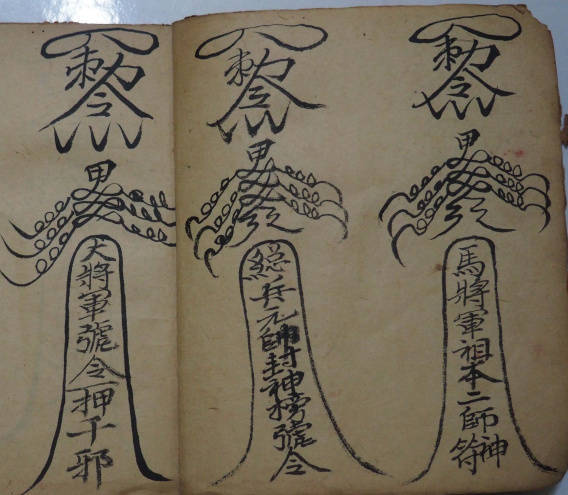 勅令
馬將軍祖本二師神符
勅令
總兵元帥封神榜號令
勅令
大將軍號令押千邪